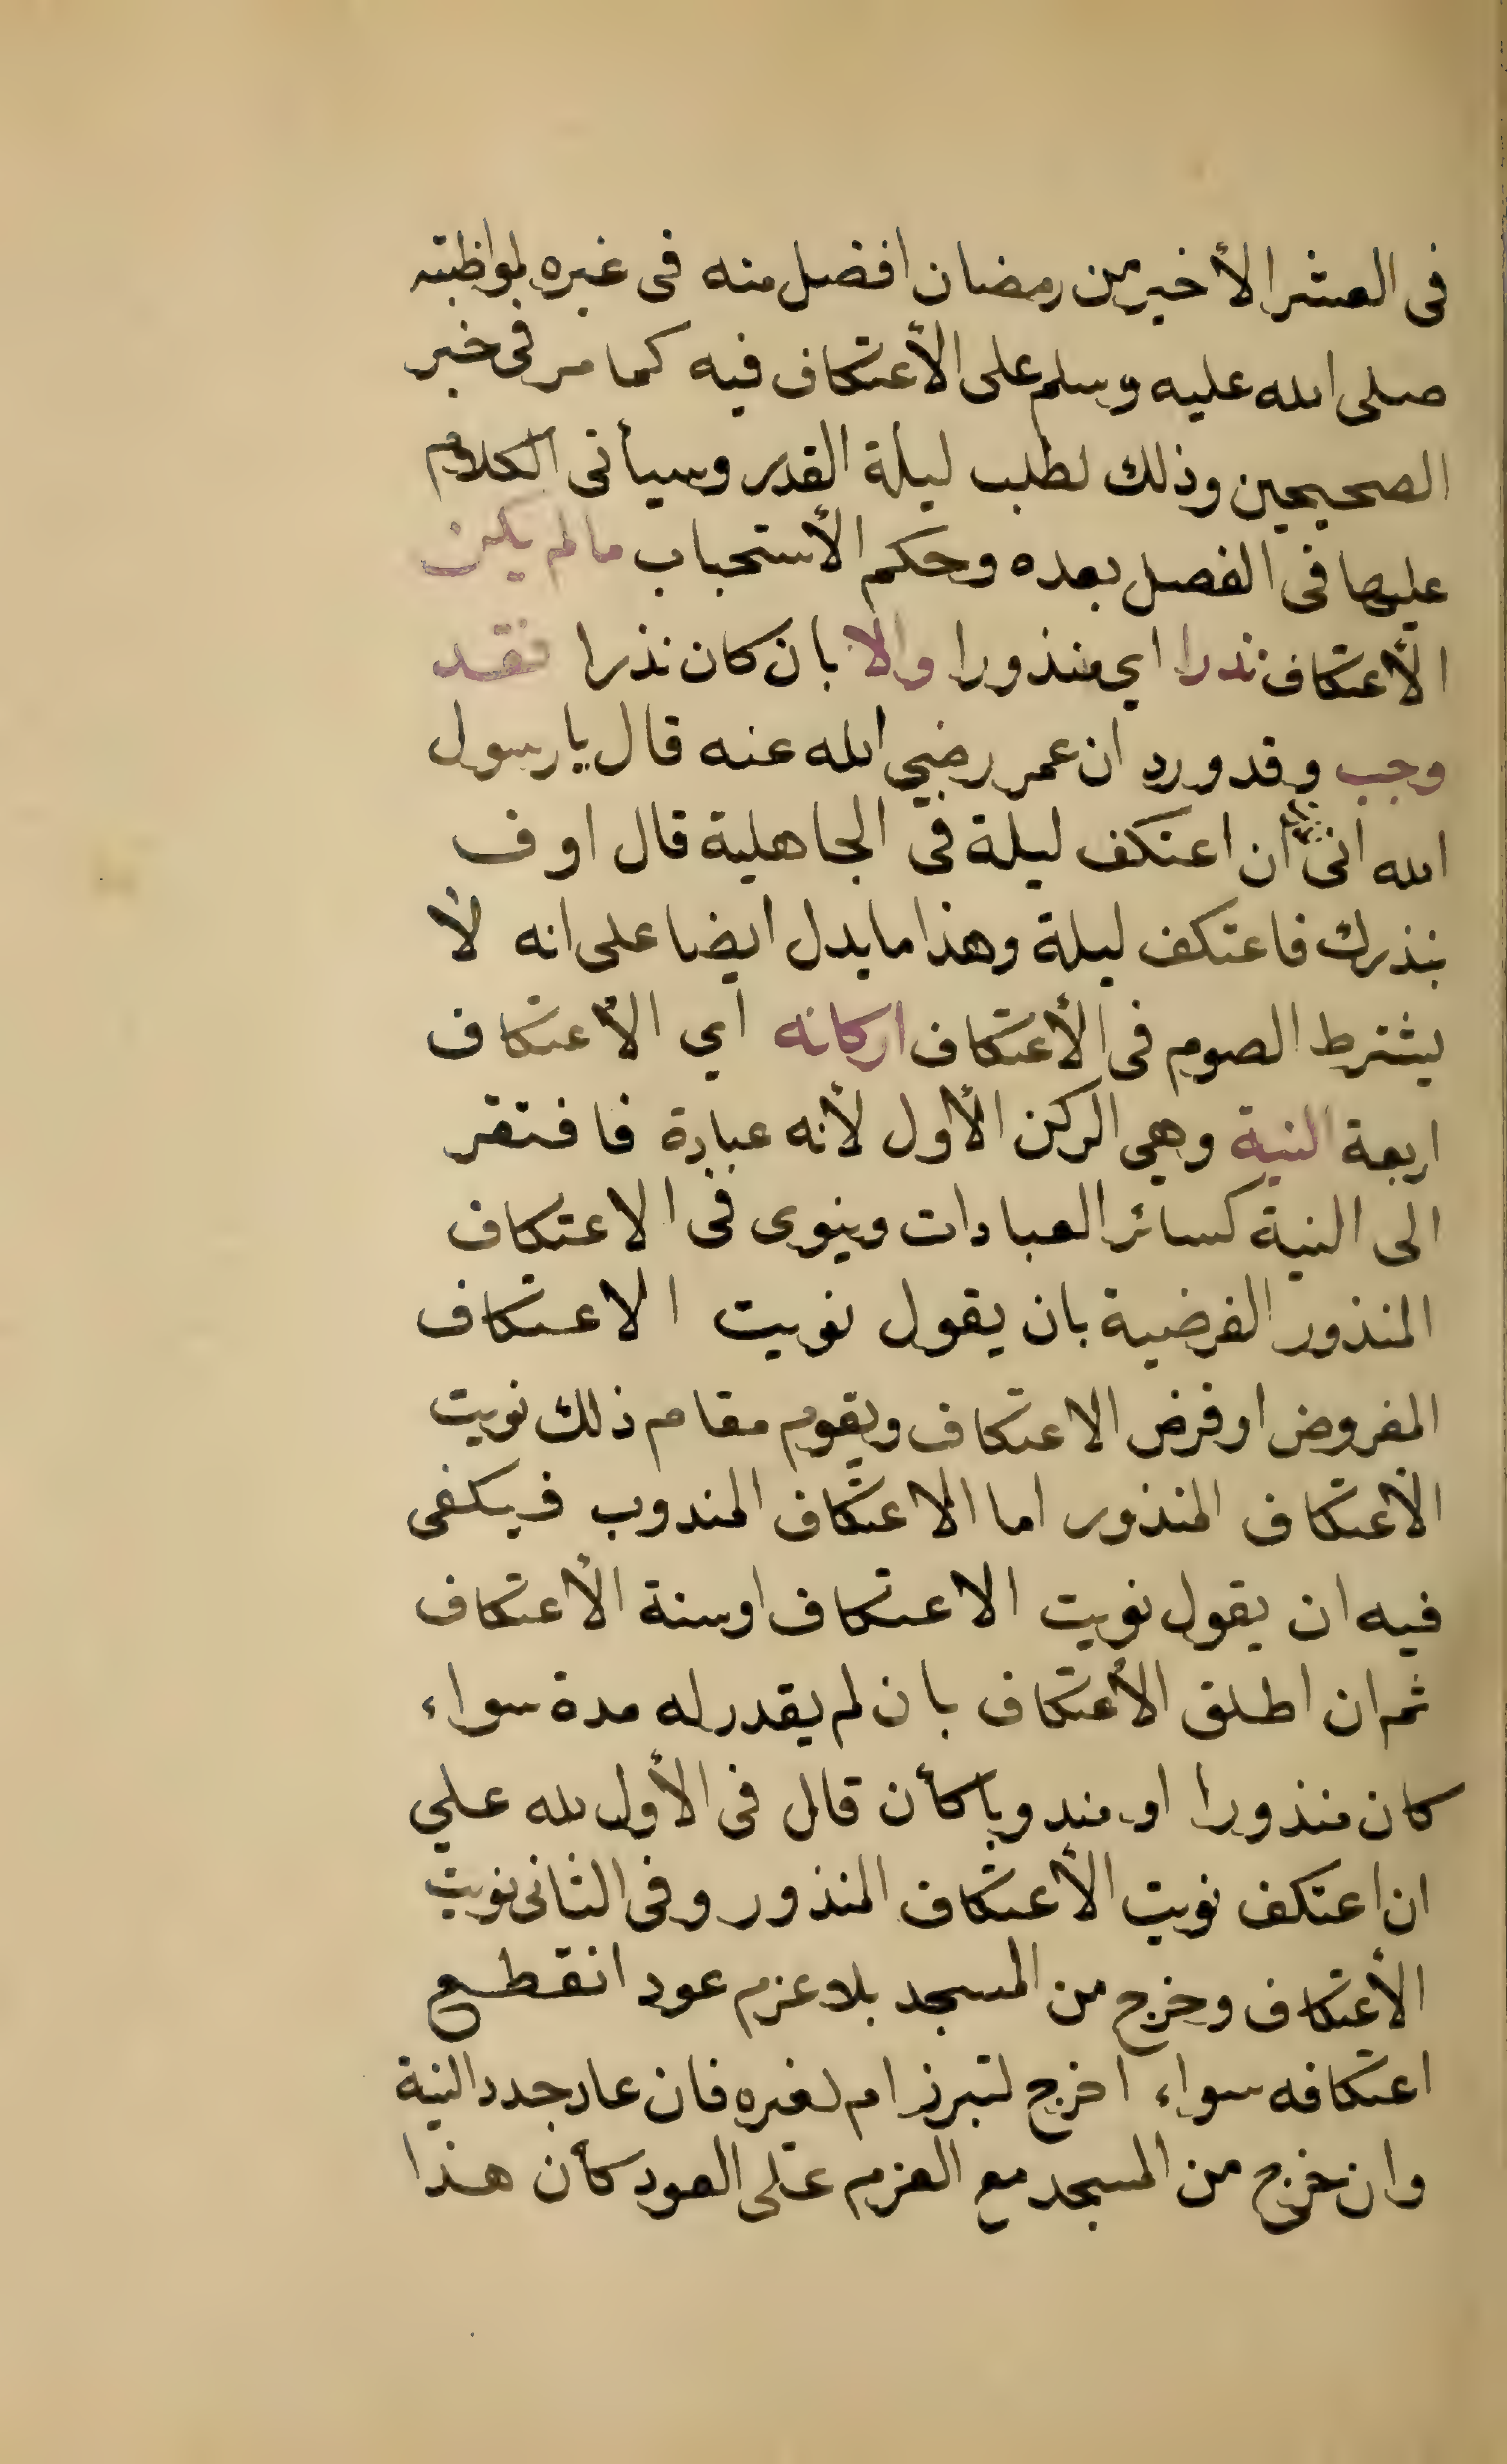 فى العشر الأخير من رمضان افضل منه فى غيره لمواظبته
صلى الله عليه وسلم على الأعتكاف فيه كما مر فى خبر
الصحيحين وذلك لطلب ليلة القدر وسيأتى الكلام
عليها فى الفصل بعده وحكم الأستحباب ما لم يكن
الأعتكاف نذرا اي منذورا والا بان كان نذرا فقد
وجب وقد ورد ان عمر رضي الله عنه قال يا رسول
الله انى ان اعتكف ليلة فى الجاهلية قال اوف
بنذرك فاعتكف ليلة وهذا ما يدل ايضا على انه لأ
يشترط الصوم فى الأعتكاف اركانه اي الأعتكاف
اربعة النية وهي الركن الأول لأنه عبادة فافتقر
الى النية كسائر العبادات وينوى فى الاعتكاف
المنذور الفرضية بان يقول نويت الاعتكاف
المفروض او فرض الاعتكاف ويقوم مقام ذلك نويت
الأعتكاف المنذور اما الاعتكاف المندوب فيكفى
فيه ان يقول نويت الاعتكاف او سنة الأعتكاف
ثم ان اطلق الأعتكاف بان لم يقدر له مدة سواء
كان منذورا او مندوبا كأن قال فى الأول لله علي
ان اعتكف نويت الأعتكاف المنذور وفى الثانى نويت
الأعتكاف وخرج من المسجد بلا عزم عود انقطع
اعتكافه سواء اخرج لتبرز ام لغيره فان عاد جدد النية
وان خرج من المسجد مع العزم على العود كأن هذا